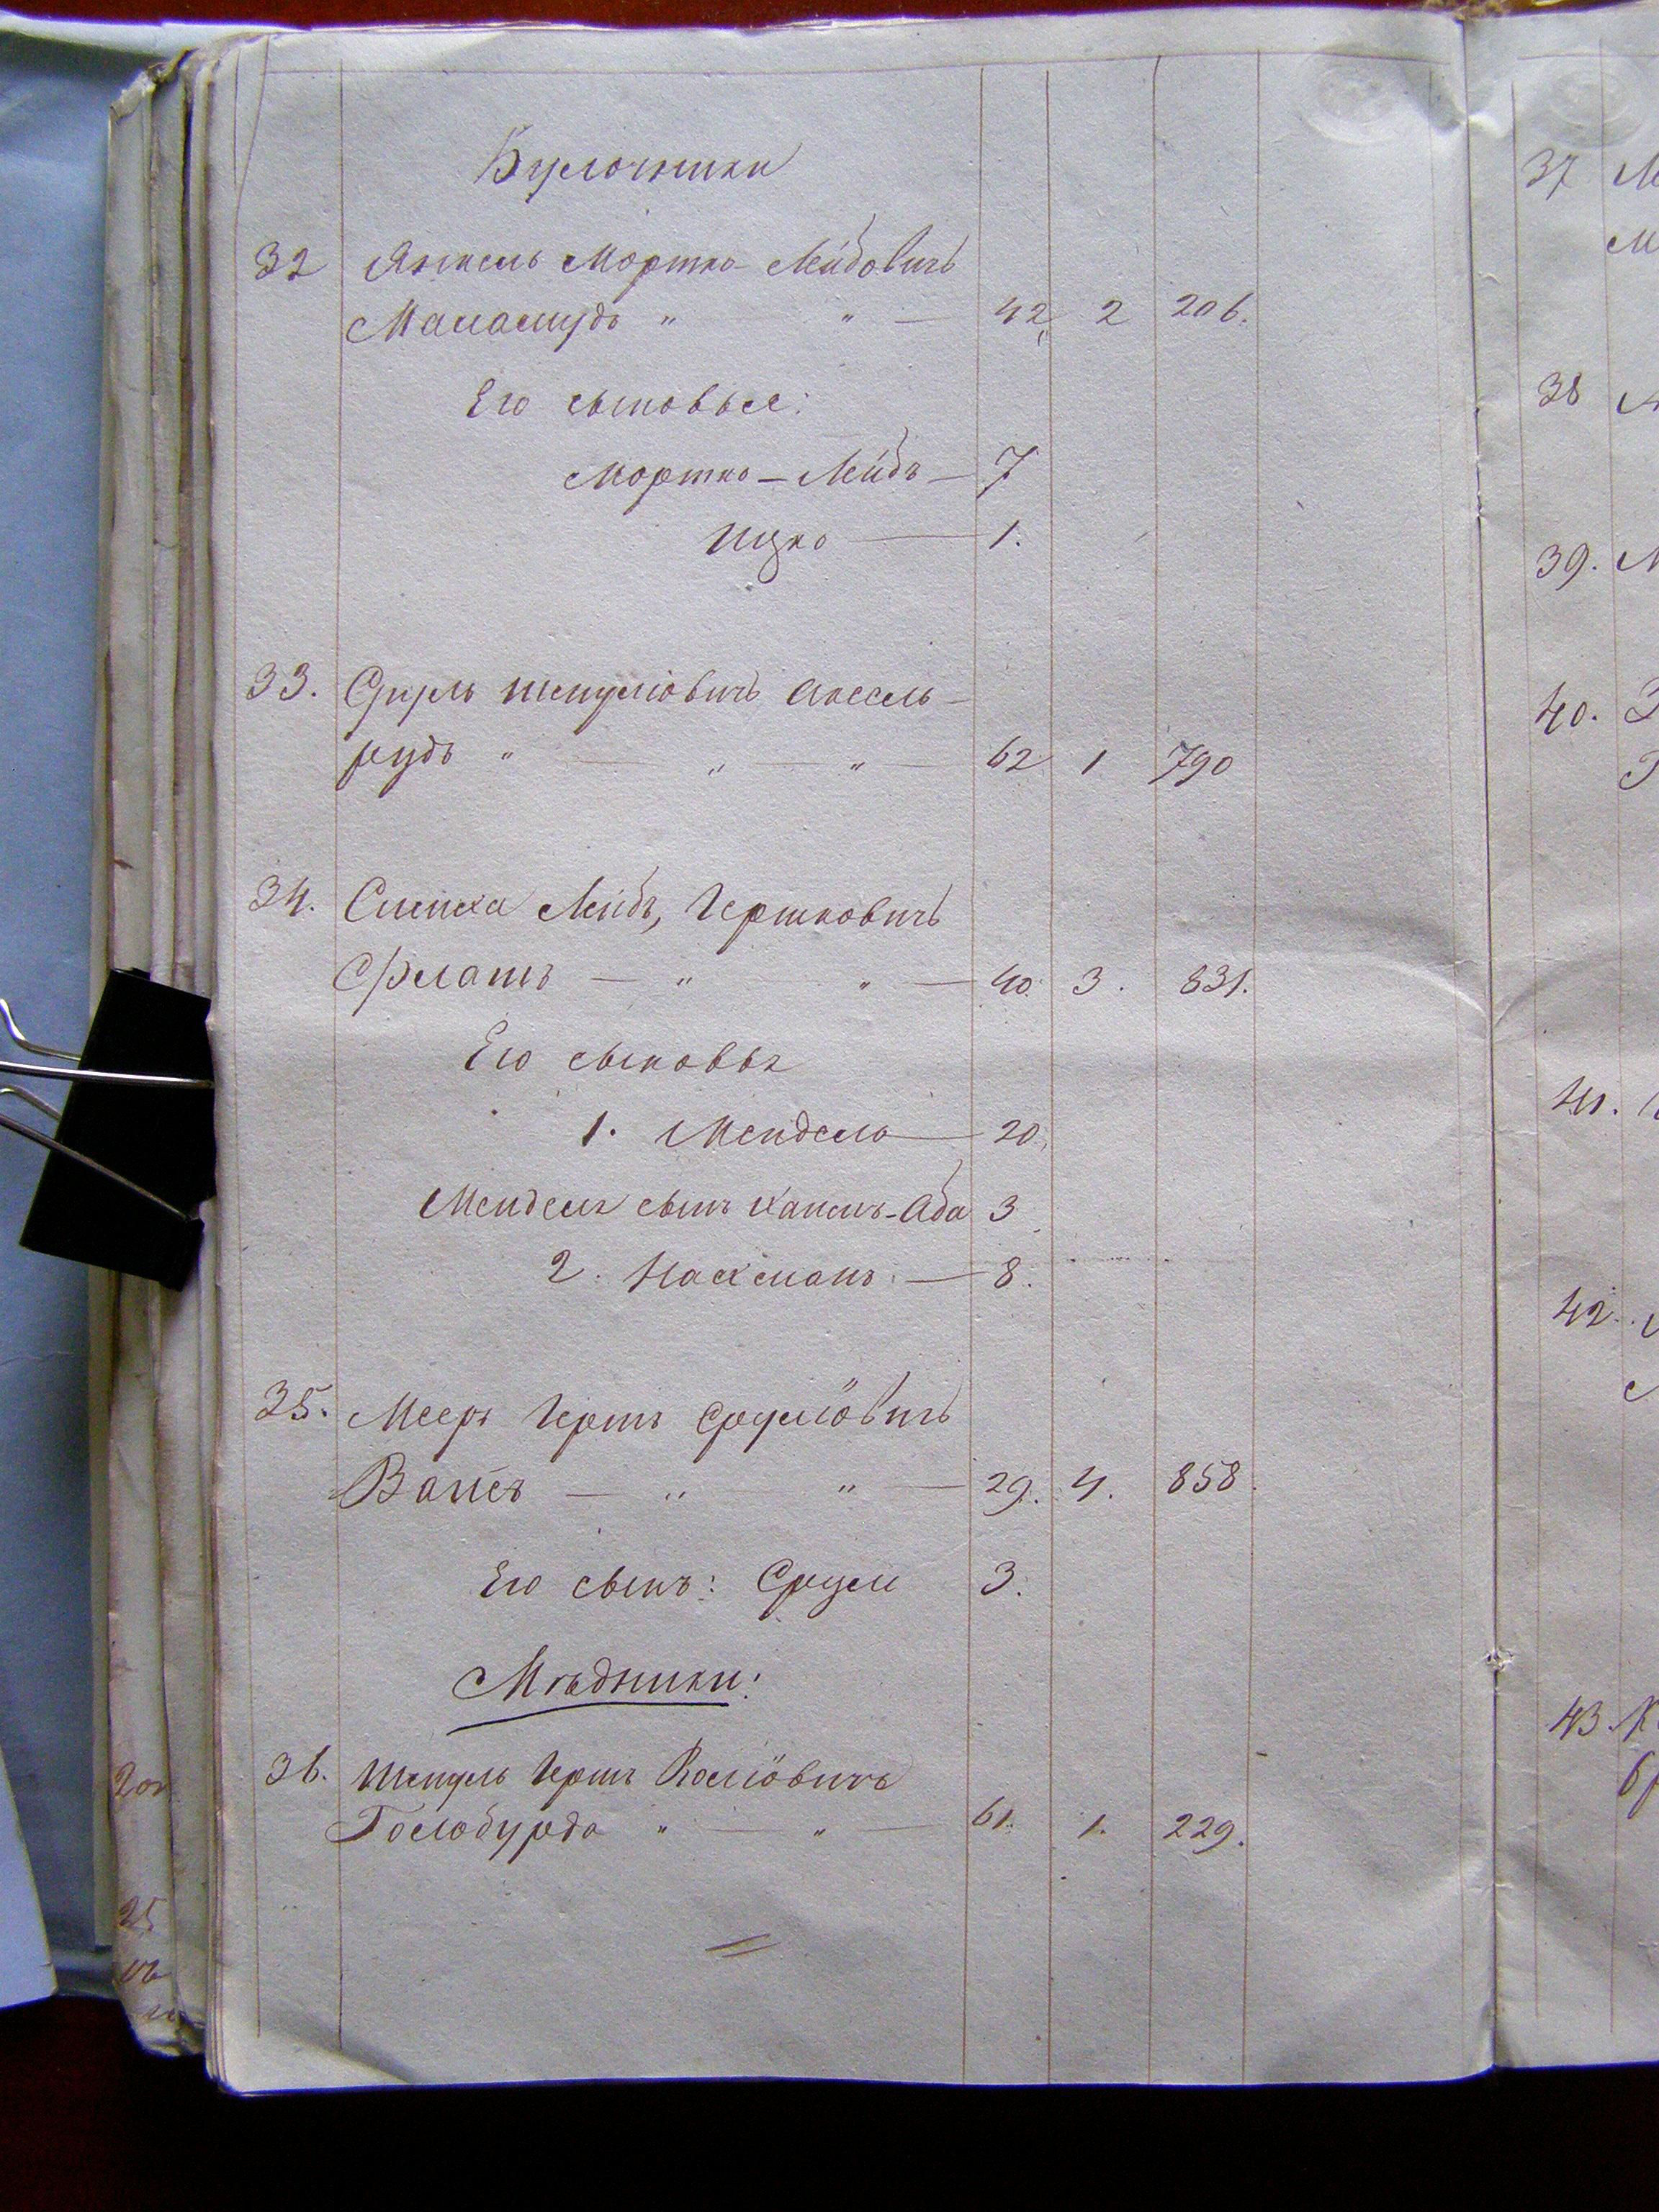 Булочники
32 Янкель Мортко Лейбовичъ
Маламудъ " " — 42 2 206.
Его сыновья:
Мортко — Лейбъ — 7
Ицко — 1.
33. Сруль Шмулiовичъ Аксель-
рудъ " — " " — 62 1 790
34. Симха Лейбъ, Гершковичъ
Флатъ — " " — 40. 3. 831.
Его сыновья
1. Мендель — 20.
Менделя сынъ Хаимъ-Аба 3
2. Нахманъ — 8.
35. Мееръ Гершъ Сруліовичъ
Вайсъ — " " — 29. 4. 858.
Его сынъ: Сруль 3.
Мѣдники:
36. Шмуль Гершъ
Голобурда " — " — 61. 1. 229.
37
38
39.
40.
41.
42.
43.